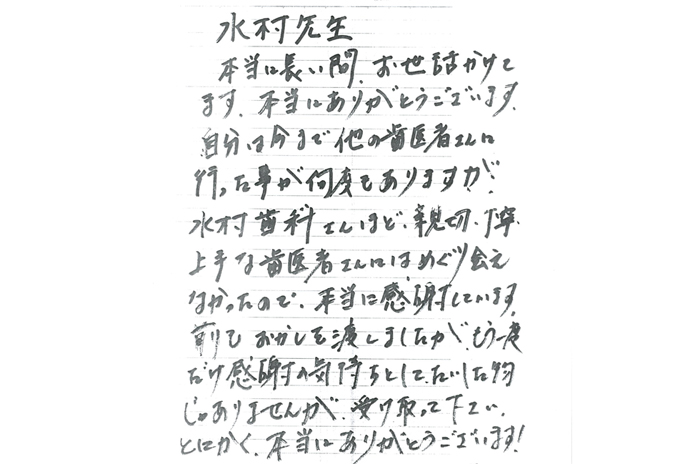 水村先生
本当に長い間、お世話かけて
ます、本当にありがとうございます。
自分は今まで他の歯医者さんに
行った事が何度もありますが、
水村歯科さんほど、親切、丁寧、
上手な歯医者さんにはめぐり会え
なかったので、本当に感謝しています。
前にもおかしを渡しましたが、もう一度
だけ感謝の気持ちとして、たいした物
じゃありませんが、受け取って下さい、
とにかく、本当にありがとうございます!